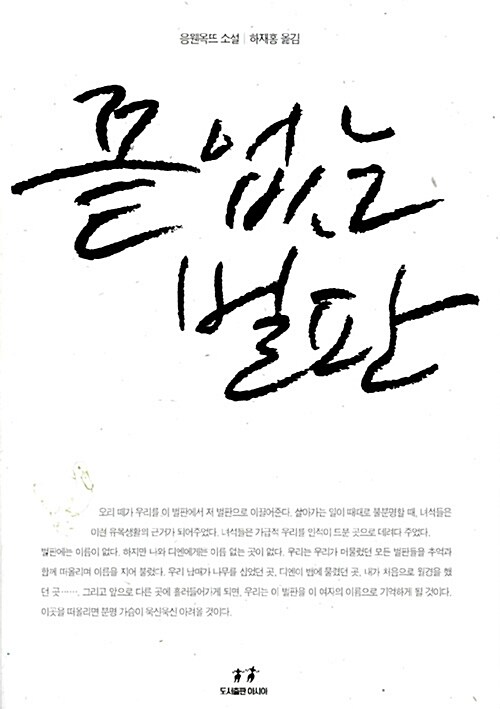 응웬옥뜨 소설 | 하재홍 옮김
끝없는
벌판
오리 떼가 우리를 이 벌판에서 저 벌판으로 이끌어준다. 살아가는 일이 때때로 불분명할 때, 녀석들은
이런 유목생활의 근거가 되어주었다. 녀석들은 가급적 우리를 인적이 드문 곳으로 데려다 주었다.
벌판에는 이름이 없다. 하지만 나와 디엔에게는 이름 없는 곳이 없다. 우리는 우리가 머물렀던 모든 벌판들을 추억과
함께 떠올리며 이름을 지어 불렀다. 우리 남매가 나무를 심었던 곳, 디엔이 뱀에 물렸던 곳, 내가 처음으로 월경을 했
던 곳……. 그리고 앞으로 다른 곳에 흘러들어가게 되면, 우리는 이 벌판을 이 여자의 이름으로 기억하게 될 것이다.
이곳을 떠올리면 분명 가슴이 욱신욱신 아려올 것이다.
도서출판 아시아